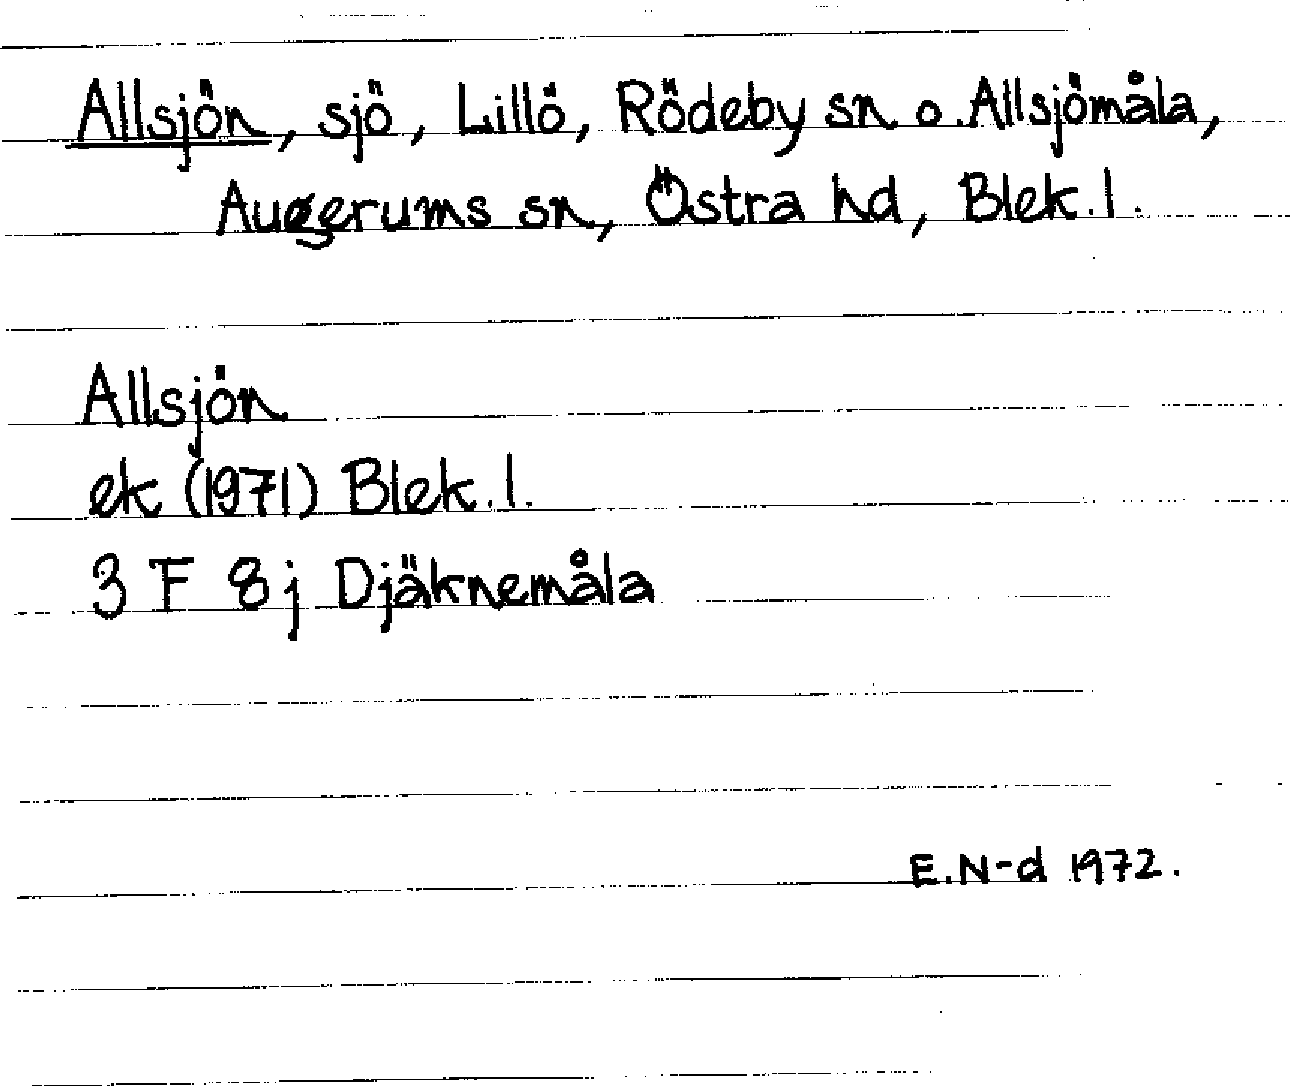 Allsjön, sjö, Lillö, Rödeby sn o. Allsjömåla,
Augerums sn, Östra hd, Blek. l.
Allsjön
ek (1971) Blek. l.
3 F 8 j Djäknemåla
E.N-d 1972.